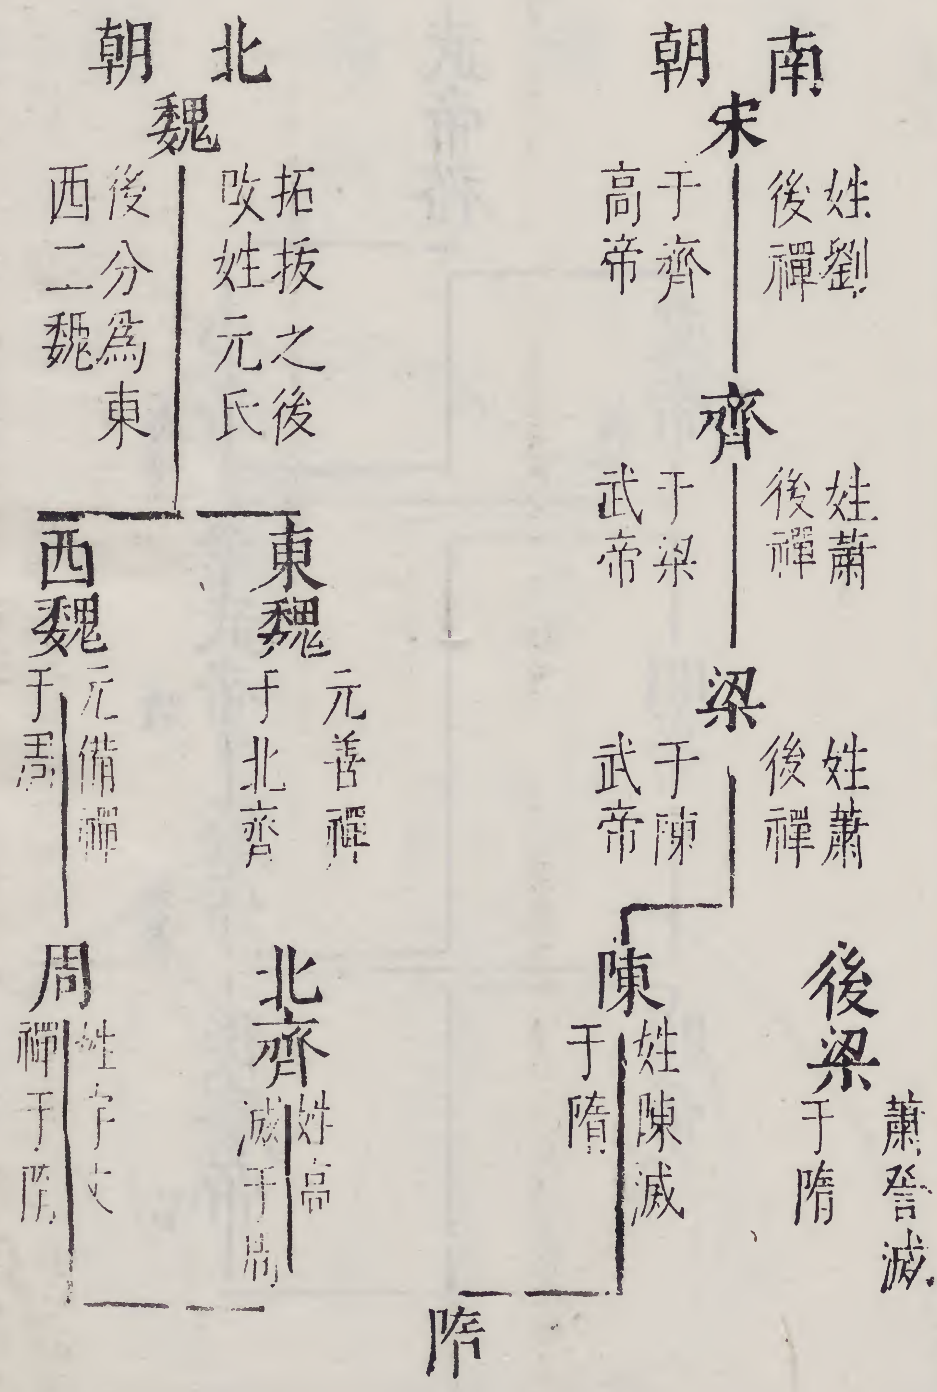 南朝
宋
姓劉
後禪
于齊
高帝
齊
姓蕭
後禪
于梁
武帝
梁
姓蕭
後禪
于陳
武帝
後梁
蕭詧滅
于隋
陳
姓陳滅
于隋
北朝
魏
拓拔之後
改姓元氏
後分爲東
西二魏
東魏
元善禪
于北齊
西魏
元脩禪
于周
北齊
姓高
滅于周
周
姓宇文
禪于隋
隋